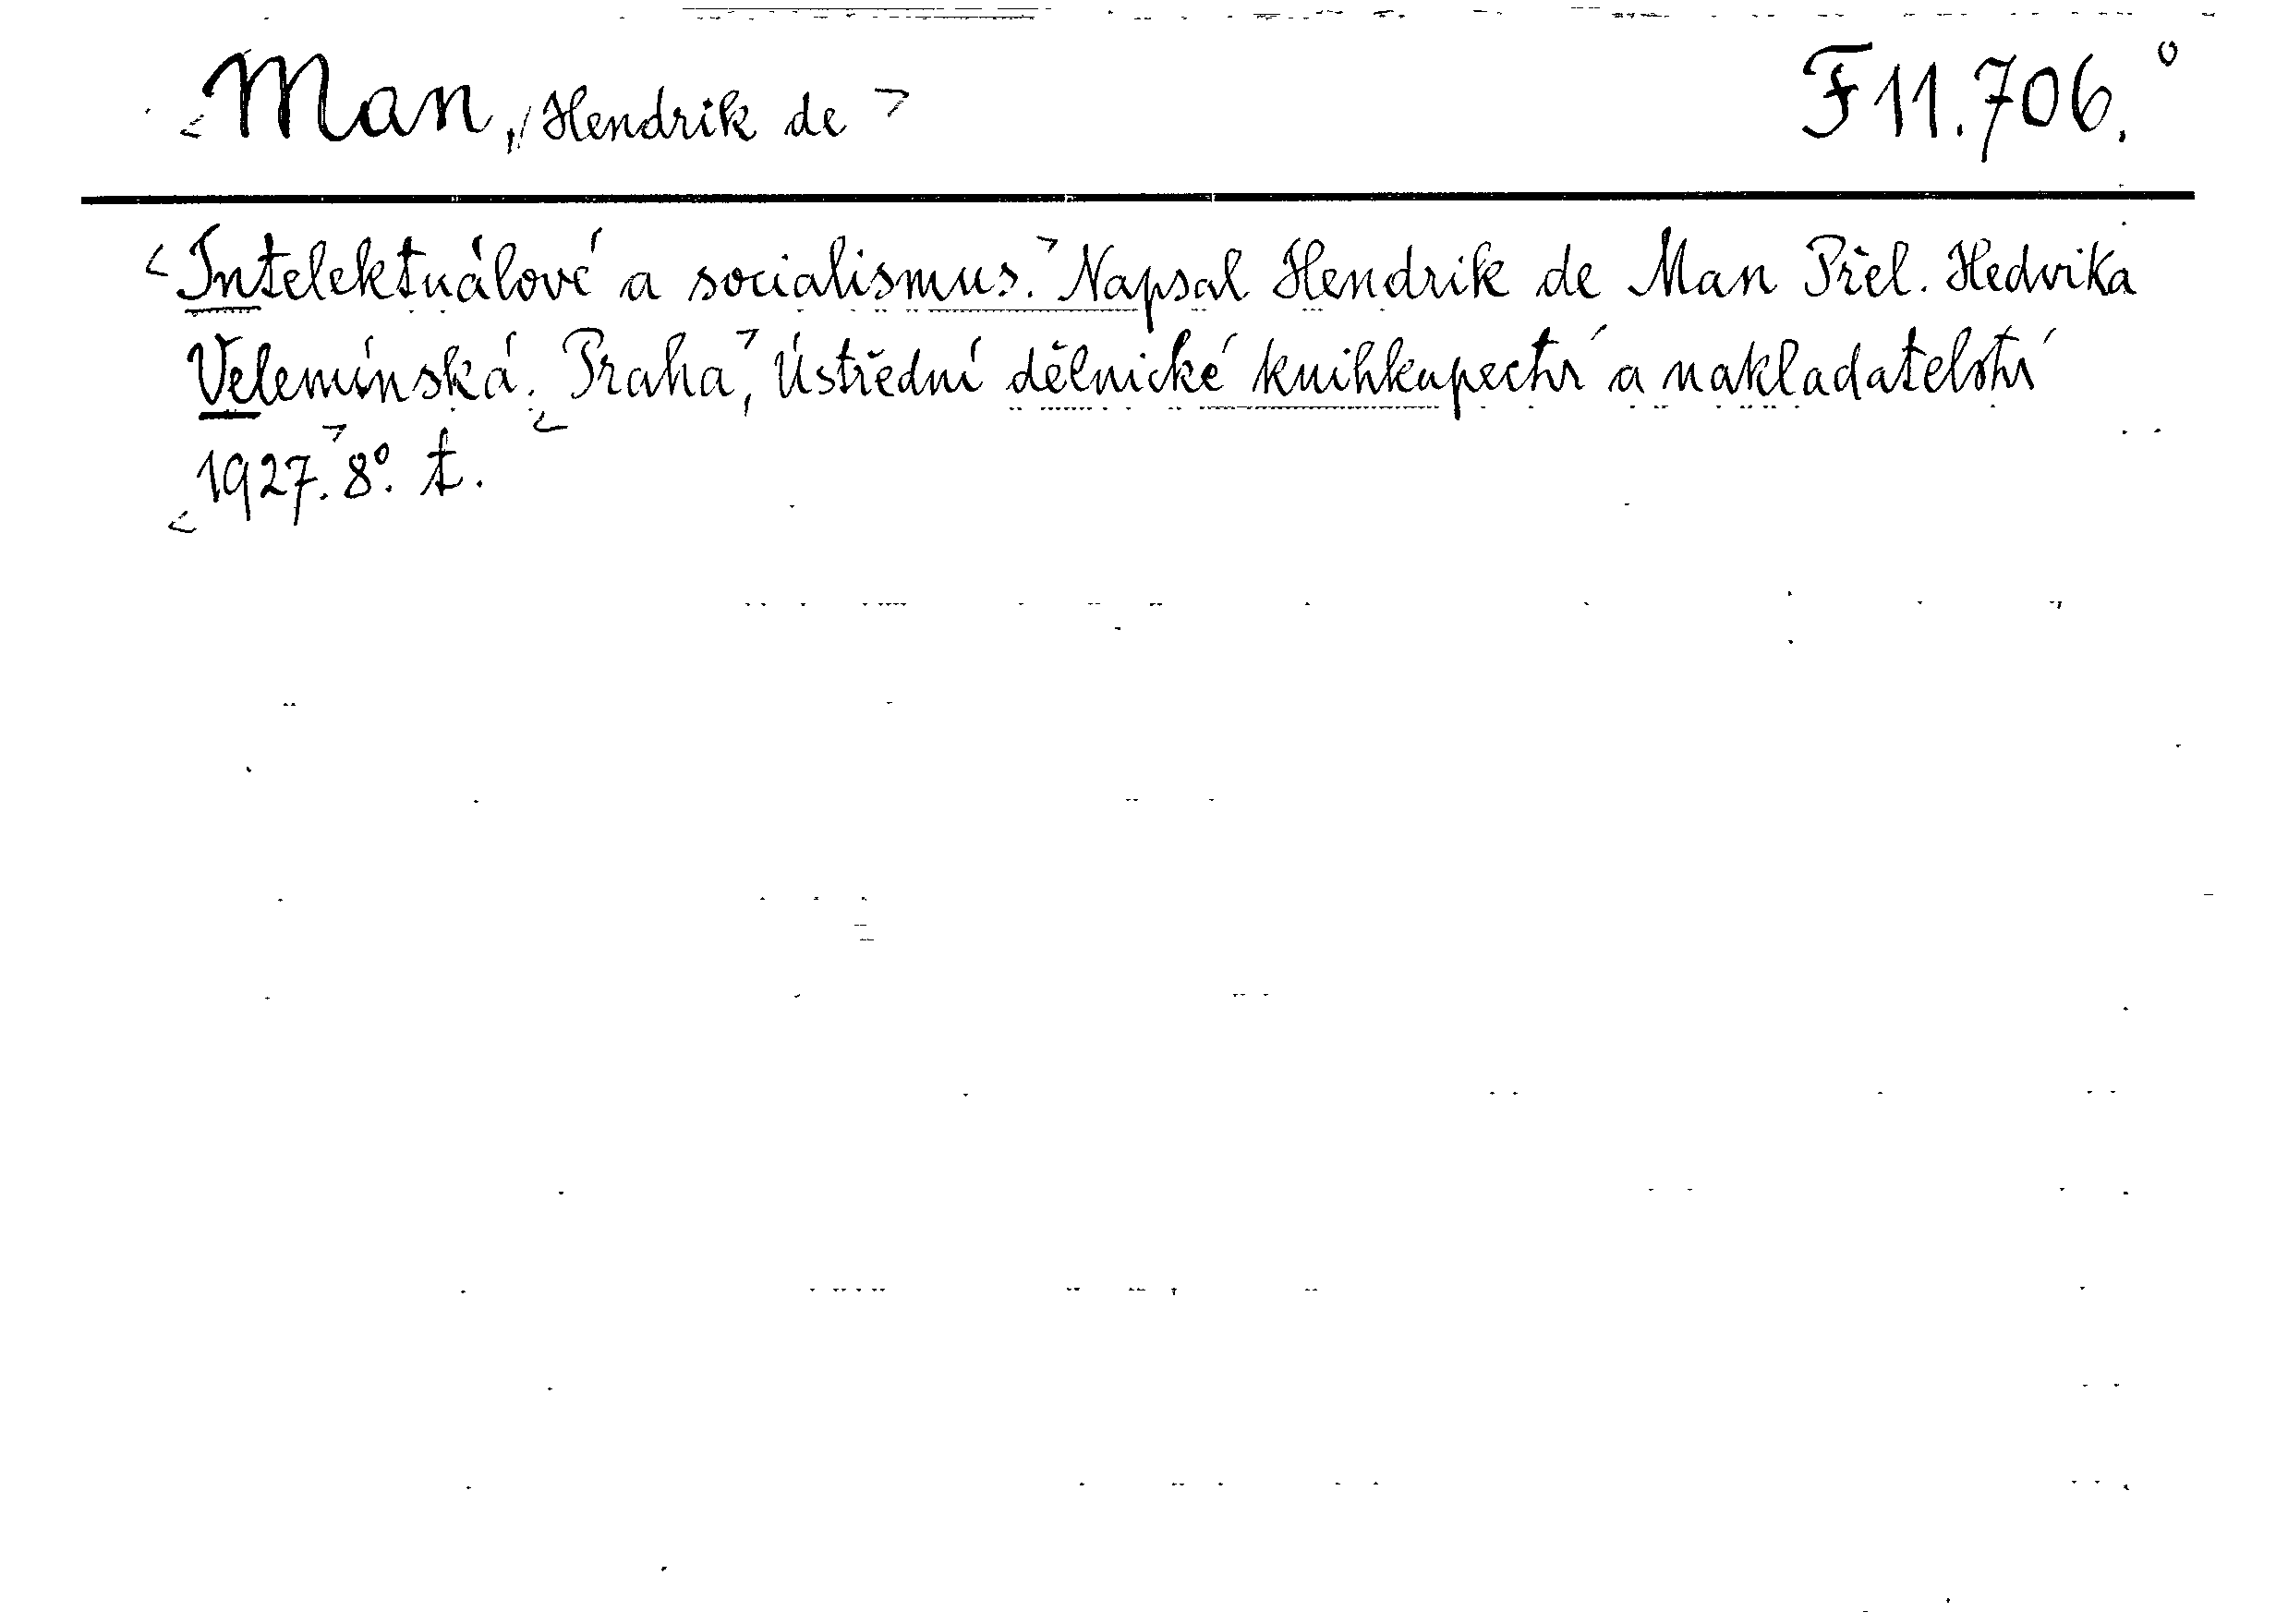 <Man, Hendrik de> F 11.706.°
<Intelektuálové a socialismus.> Napsal Hendrik de Man Přel. Hedvika
Velemínská. <Praha>, Ústřední dělnické knihkupectví a nakladatelství
<1927.> 8°. t.